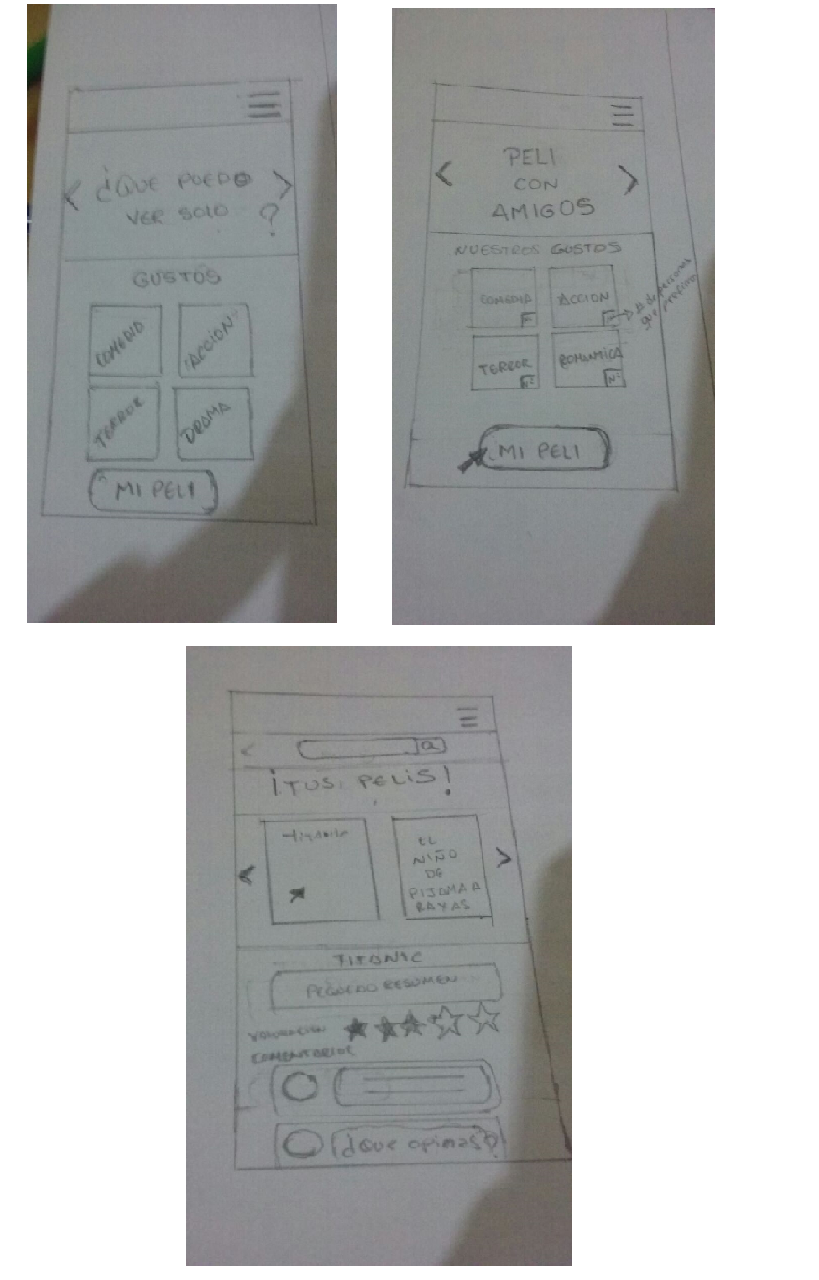 ¿QUE PUEDO
VER SOLO ?
GUSTOS
COMEDIA
ACCION
TERROR
DRAMA
MI PELI
PELI
CON
AMIGOS
NUESTROS GUSTOS
COMEDIA
ACCION
# de personas
que
TERROR
Nº
ROMANTICA
Nº
MI PELI
¡TUS PELIS!
Titanic
EL
NIÑO
DE
PIJAMA A
RAYAS
TITANIC
PEQUEÑO RESUMEN
VALORACION
COMENTARIOS
¿Que opinas?